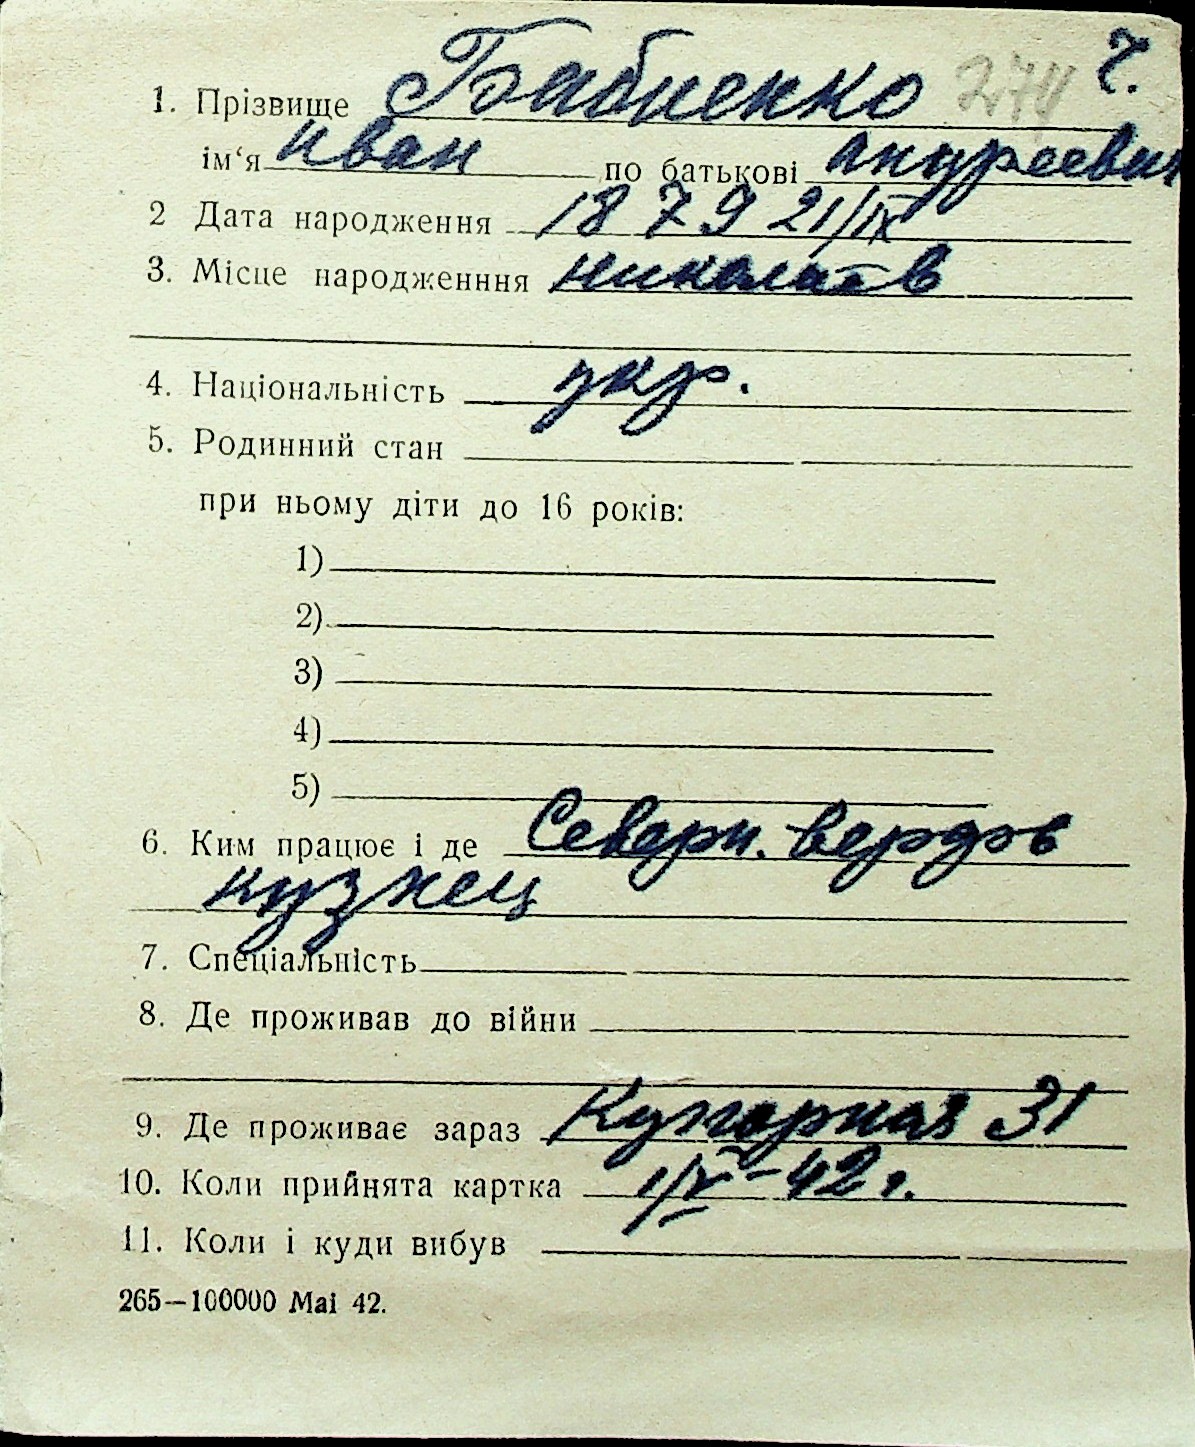 ч.
1. Прізвище Бабиенко 274
ім‘я Иван по батькові Андреевич
2 Дата народження 1879 21/IX
3. Місце народженння Николаев
4. Національність укр.
5. Родинний стан
при ньому діти до 16 років:
1)
2)
3)
4)
5)
6. Ким працює і де Северн. верфь
кузнец
7. Спеціальність
8. Де проживав до війни
9. Де проживає зараз 31
10. Коли прийнята картка 1/V-42 г.
11. Коли і куди вибув
265—100000 Mai 42.